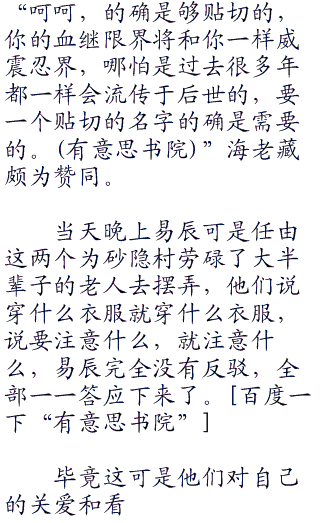 “呵呵，的确是够贴切的，
你的血继限界将和你一样威
震忍界，哪怕是过去很多年
都一样会流传于后世的，要
一个贴切的名字的确是需要
的。(有意思书院)”海老藏
颇为赞同。
当天晚上易辰可是任由
这两个为砂隐村劳碌了大半
辈子的老人去摆弄，他们说
穿什么衣服就穿什么衣服，
说要注意什么，就注意什
么，易辰完全没有反驳，全
部一一答应下来了。[百度一
下“有意思书院”]
毕竟这可是他们对自己
的关爱和看